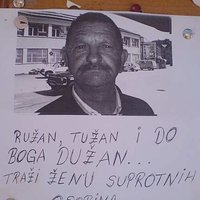 RUŽAN, TUŽAN I DO
BOGA DUŽAN...
TRAŽI ŽENU SUPROTNIH
OSOBINA